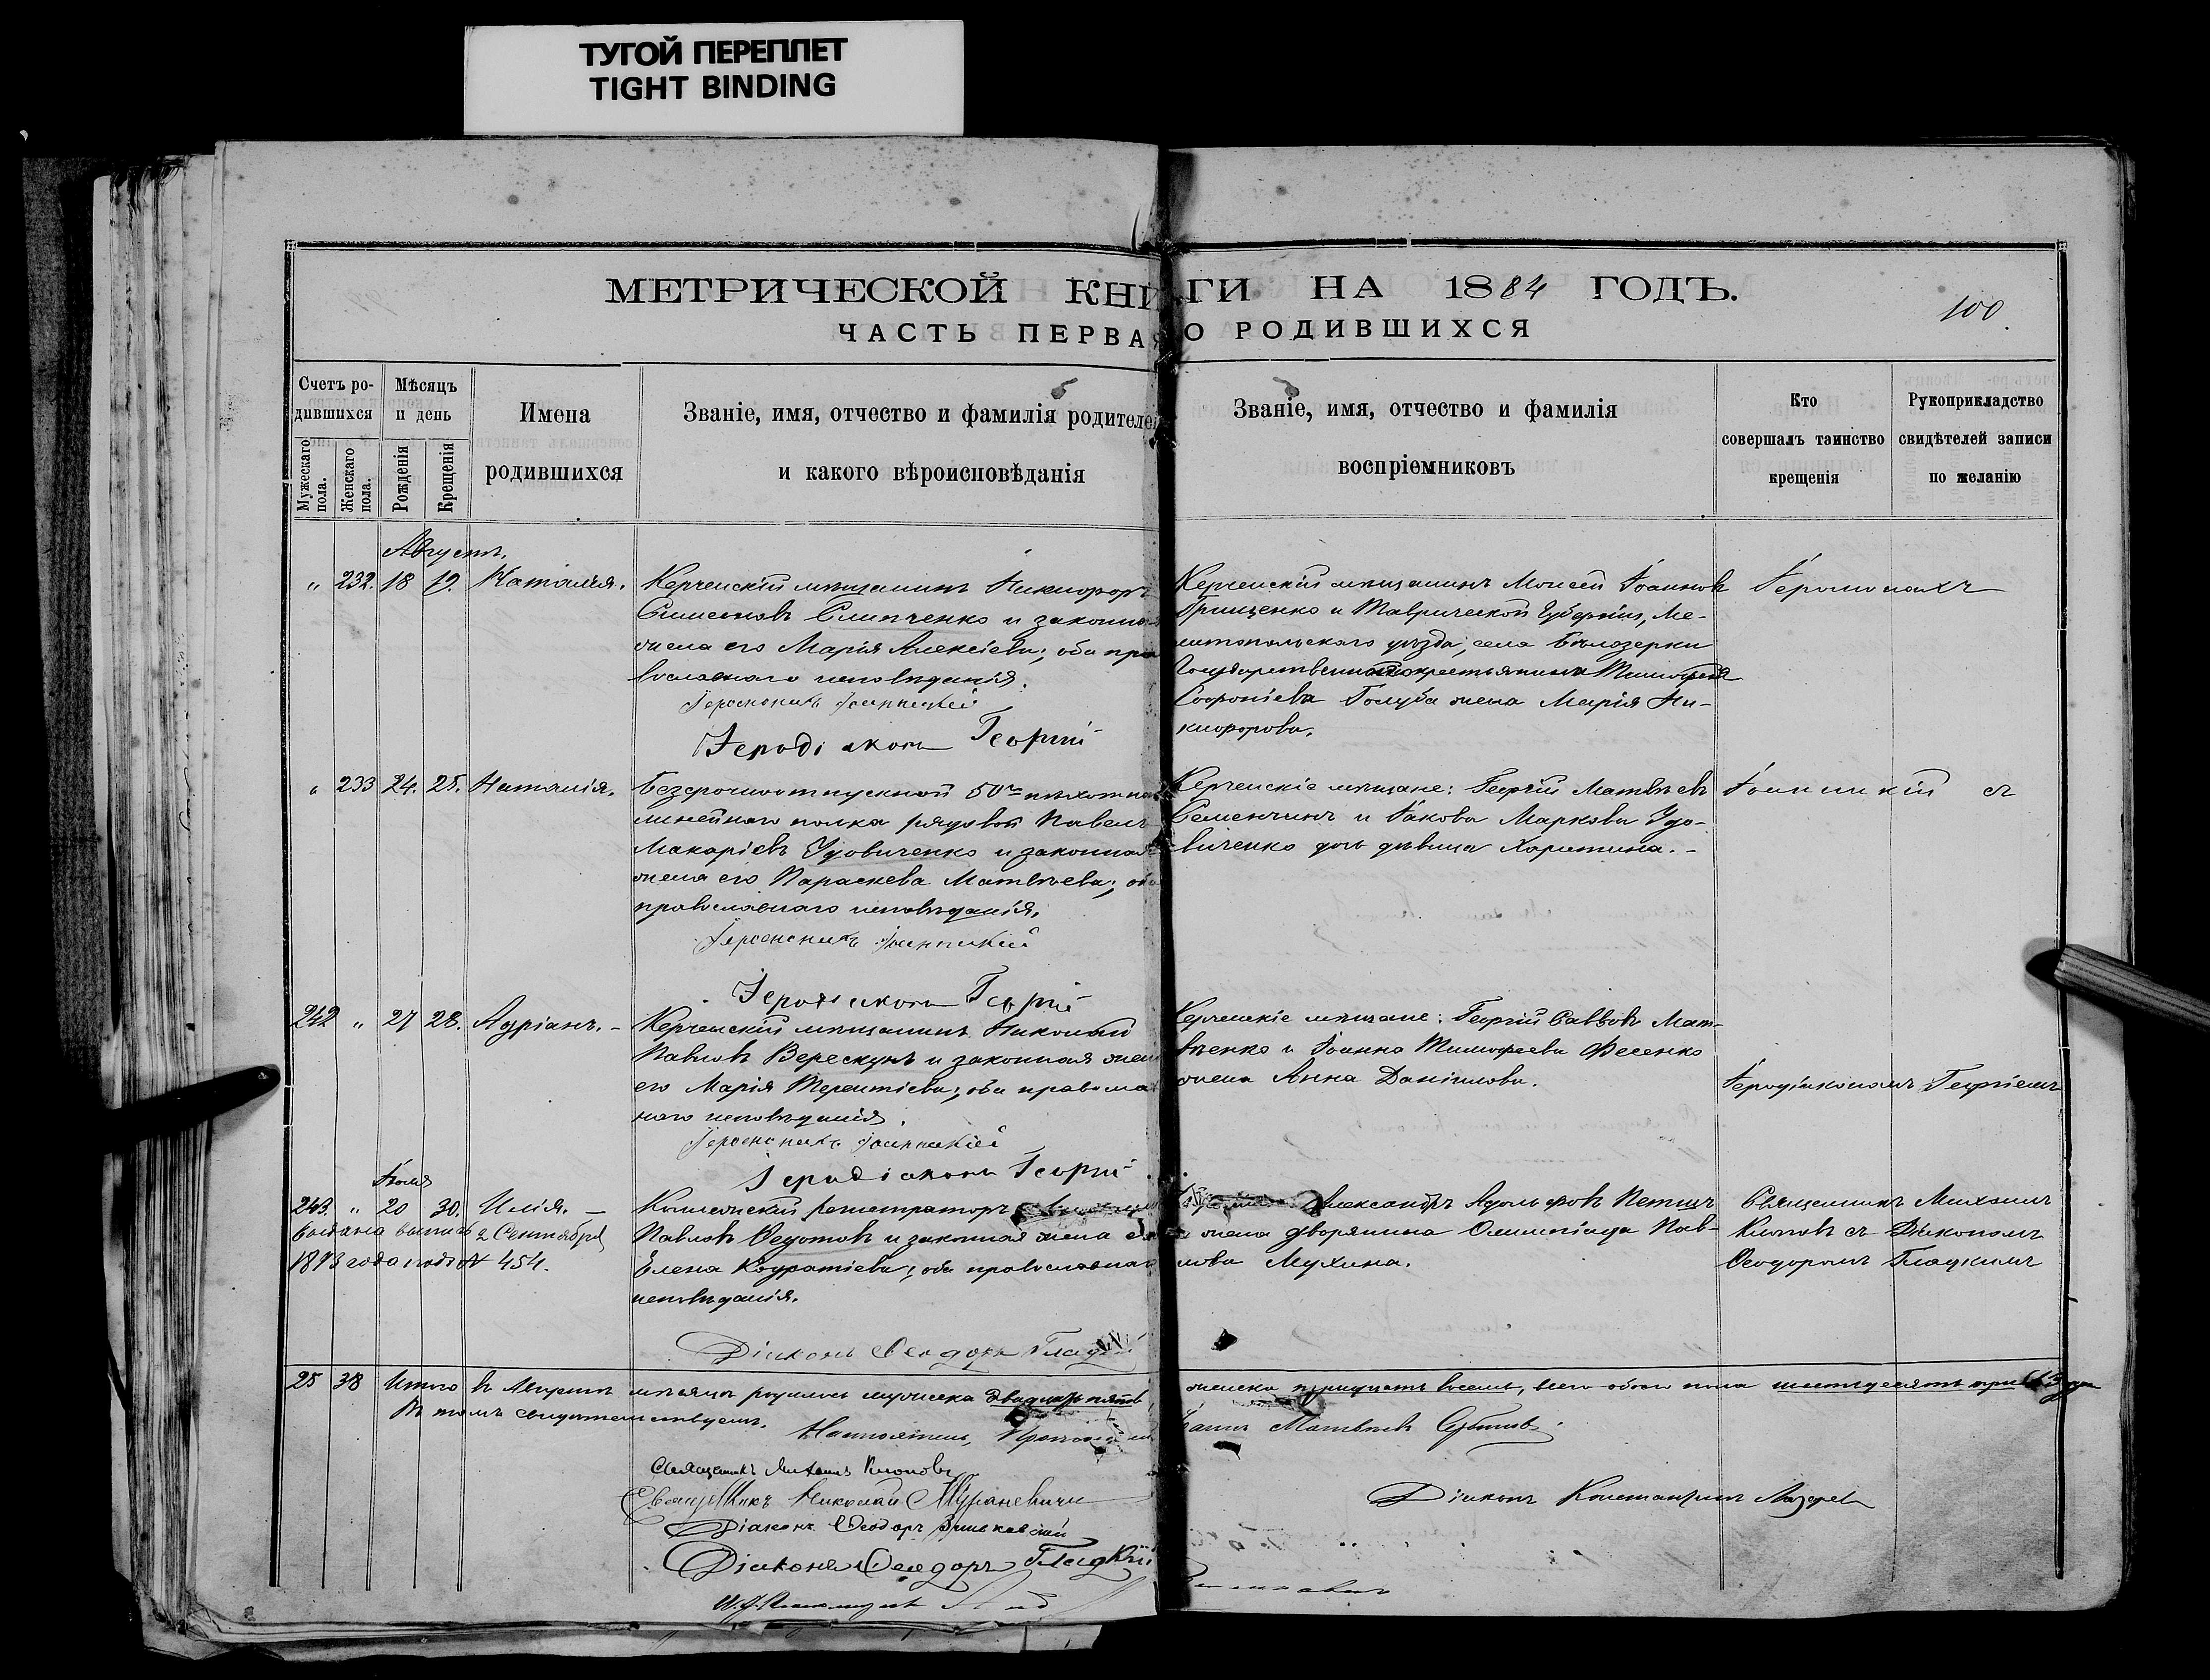 ТУГОЙ ПЕРЕПЛЕТ
TIGHT BINDING
МЕТРИЧЕСКОЙ КНИГИ НА 1884 ГОДЪ.
100
ЧАСТЬ ПЕРВАЯ О РОДИВШИХСЯ
Счетъ родившихся
Мужескаго пола.
Женскаго пола.
Мѣсяцъ и день
Рожденія
Крещенія
Имена родившихся
Званіе, имя, отчество и фамилія родителей
и какого вѣроисповѣданія
Званіе, имя, отчество и фамилія
воспріемниковъ
Кто
совершалъ таинство
крещенія
Рукоприкладство
свидѣтелей записи
по желанію
Августъ.
" 232. 18 19. Наталія.
Керченскій мѣщанинъ Никифоръ
Симеоновъ Слипченко и законная
жена его Марія Алексіева; оба пра
вославнаго исповѣданія.
Іеромонахъ Іоанникій
Іеродіаконъ Георгій
Керченскій мѣщанинъ Моисей Іоанновъ
Грищенко и Таврической Губерніи, Ме-
литопольскаго уѣзда, села Бѣлозерки
Государственнаго крестьянина Тимофея
Софроніева Голуба жена Марія Ни-
кифорова.
Іеромонахъ
" 233 24. 25. Наталія.
Безсрочноотпускной 50го пѣхотна
линейнаго полка рядовой Павелъ
Макаріевъ Удовиченко и законная
жена его Параскева Матвѣева; оба
православнаго исповѣданія.
Іеромонахъ Іоанникій
Іеродіаконъ Георгій
Керченскіе мѣщане: Георгій Матвѣевъ
Семенчинъ и Іакова Маркова Удо-
виченко дочь дѣвица Харитина. -
Іоанникій съ
242 " 27 28. Адріанъ. -
Керченскій мѣщанинъ Николай
Павловъ Верескунъ и законная жена
его Марія Терентіева; оба правосла
наго исповѣданія.
Іеромонахъ Іоанникій
Іеродіаконъ Георгій
Керченскіе мѣщане: Георгій Саввовъ Мат-
вѣенко и Іоанна Тимофеева Фесенко
жена Анна Даніилова.
Іеродіакономъ Георгіемъ
Іюля
243. " 20 30. Илія. -
Выдана выпись 2 Сентября
1893 года подъ № 454.
Колежскій регистраторъ
Павловъ Федотовъ и законная жена его
Елена Кодратіева; оба православнаго
исповѣданія.
Діаконъ Феодоръ Гладкій
Александръ Адольфовъ Петцъ
и жена дворянина Олимпіада Пав-
лова Мухина.
Священникъ Михаилъ
Клоповъ съ Діакономъ
Феодоромъ Гладкимъ
25 38 Итого въ Августѣ мѣсяцѣ родилось мужеска двадцать пять,
женска тридцать восемь, всего обоего пола шестьдесятъ три (63) душ
Въ томъ свидѣтельствуемъ.
Настоятель, Протоіерей
Матвѣевъ
Священникъ Михаилъ Клоповъ
Священникъ Николай
Діаконъ Константинъ Лазаревъ
Діаконъ Феодоръ
Діаконъ Феодоръ Гладкій